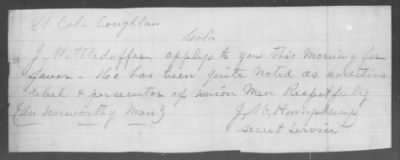 Lt Colo Coughlan
Colo
J. Mittledoffer applys to you this Morning for
favor - He has been quite Noted as an active
Rebel & persecutor of Union Men Respectfully
(An unworthy Man) J. W. Humphreys
secret service